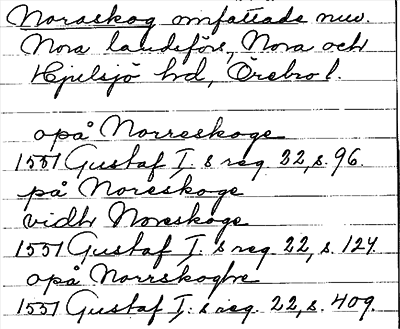 Noraskog omfattade nuv.
Nora landsförs, Nora och
Hjulsjö hd, Örebro l.
opå Norreskoge
1551 Gustaf I:s reg. 22, s. 96.
på Noreskoge
vidh Noreskoge
1551 Gustaf I:s reg. 22, s. 124.
opå Norrskoghe
1551 Gustaf I:s reg. 22, s. 409.